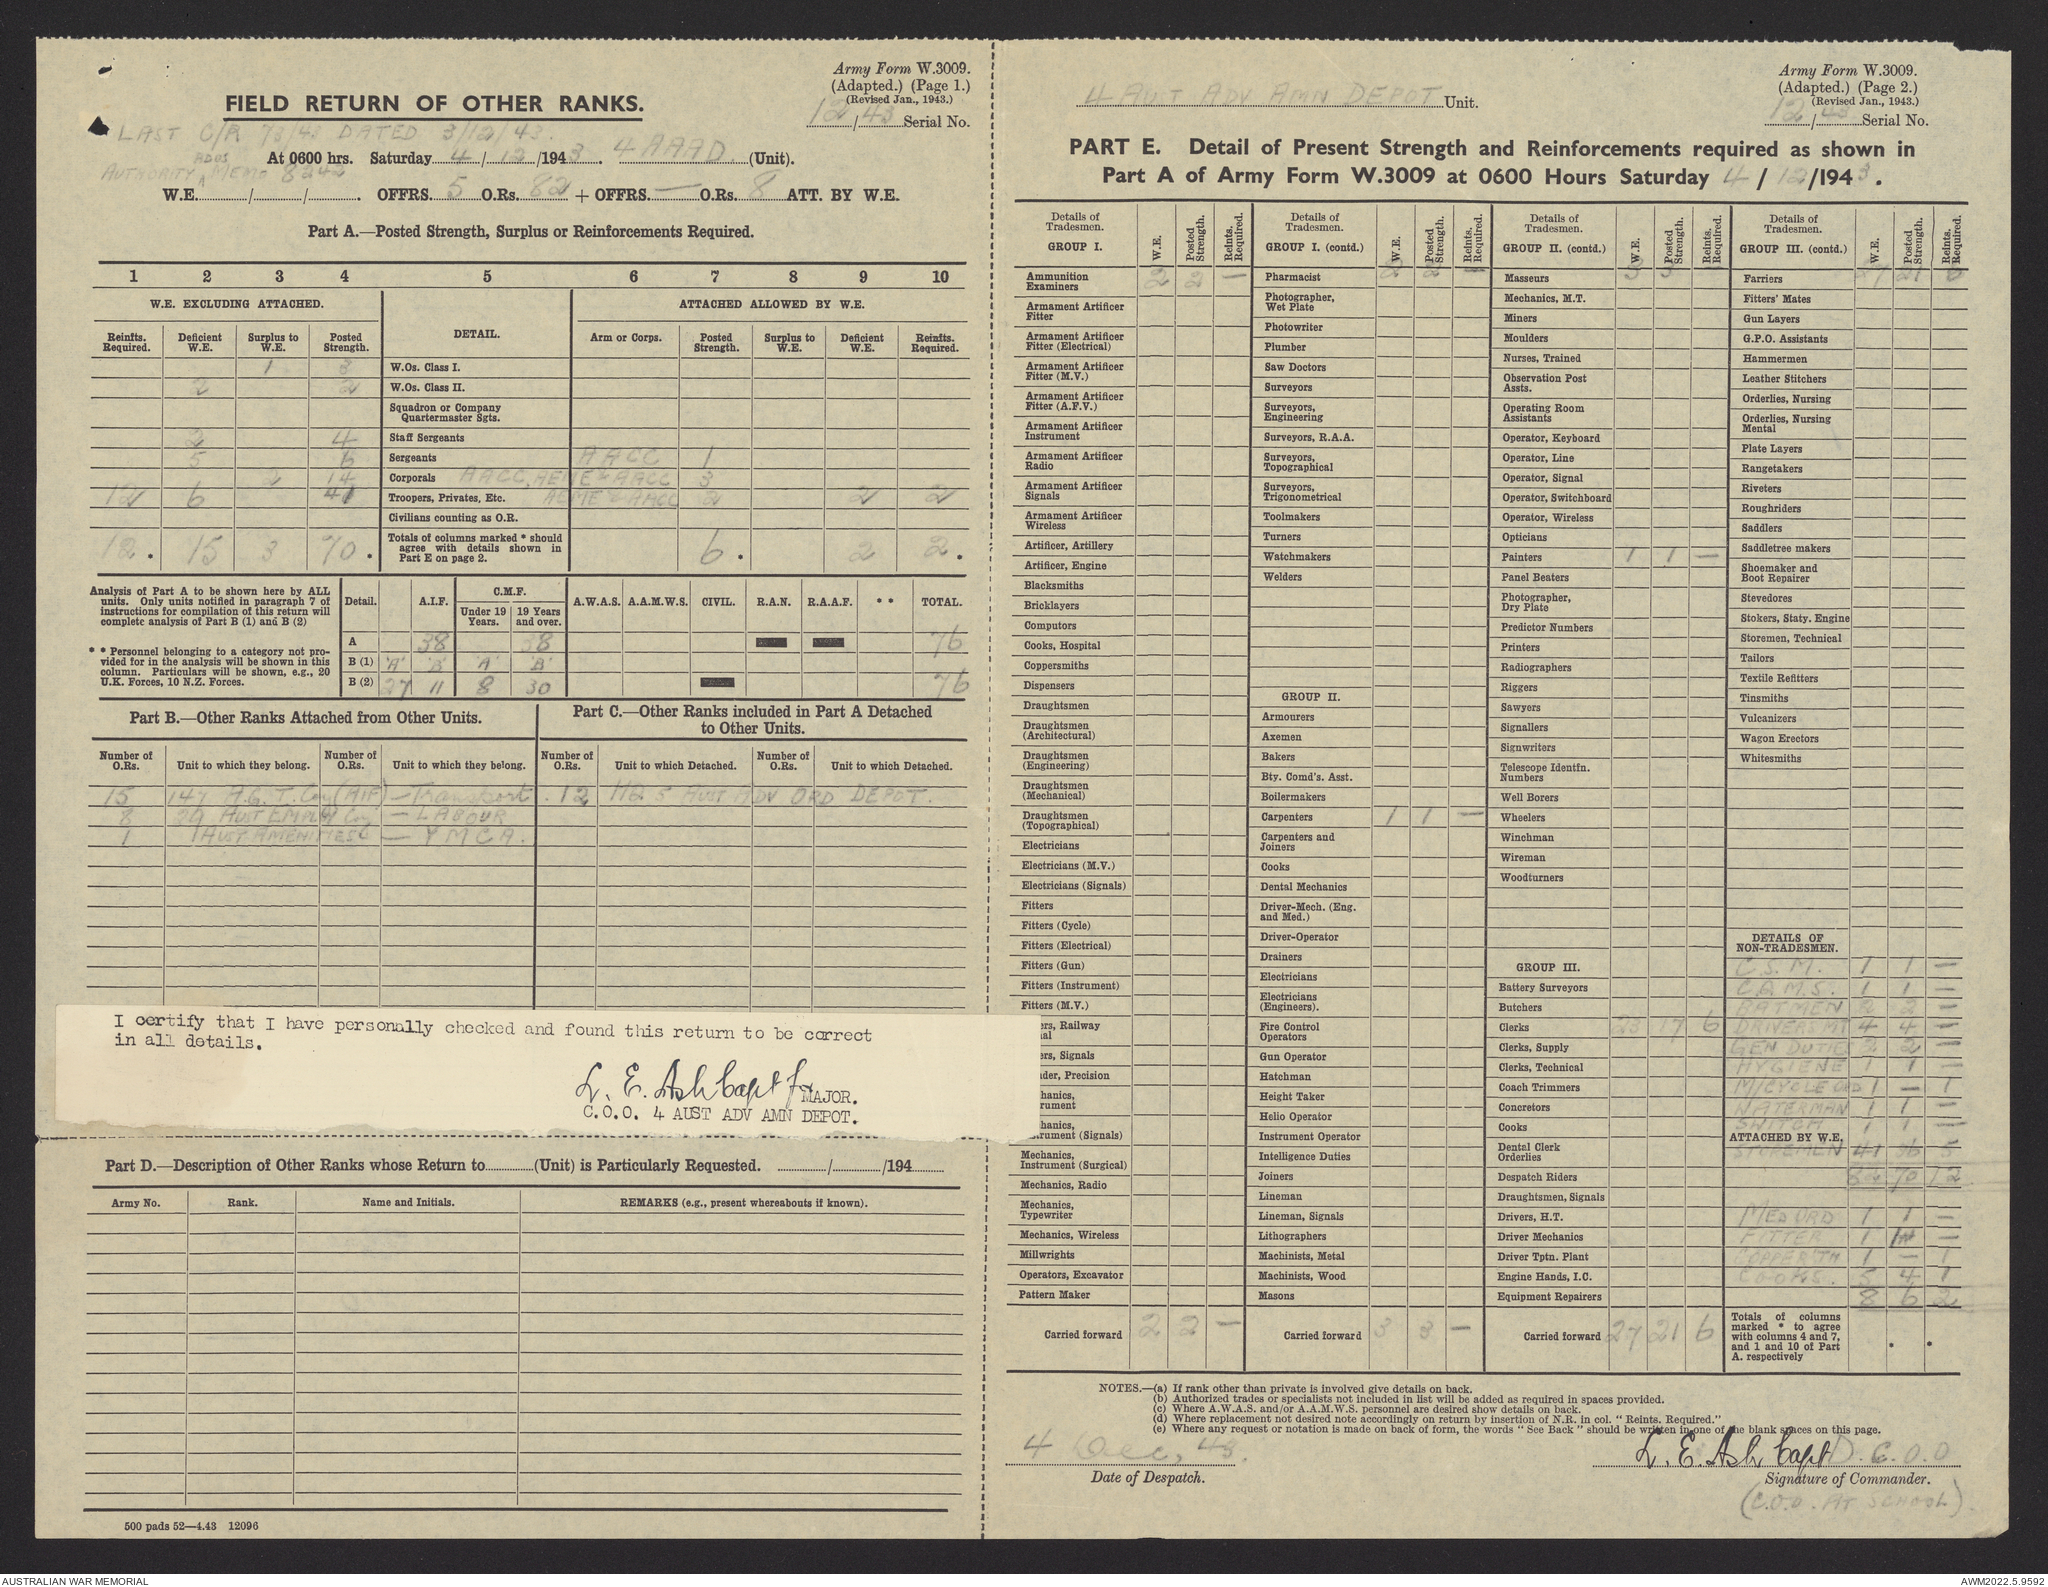 Army Form W.3009.
(Adapted.) (Page 1.)
(Revised Jan., 1943.)
12/43 Serial No.
FIELD RETURN OF OTHER RANKS.
LAST C/R 73/43 DATED 3/12/43.
At 0600 hrs. Saturday 4/12/1943. 4 AAAD (Unit).
AUTHORITY ADOS MEMO 8242
W.E. / / . OFFRS. 5 O.Rs. 82 + OFFRS. — O.Rs. 8 ATT. BY W.E.
Part A.—Posted Strength, Surplus or Reinforcements Required.
1 2 3 4 5 6 7 8 9 10
W.E. EXCLUDING ATTACHED. DETAIL. ATTACHED ALLOWED BY W.E.
Reinfts. Required. Deficient W.E. Surplus to W.E. Posted Strength. Arm or Corps. Posted Strength. Surplus to W.E. Deficient W.E. Reinfts. Required.
1 3 W.Os. Class I.
2 2 W.Os. Class II.
Squadron or Company
Quartermaster Sgts.
2 4 Staff Sergeants
5 6 Sergeants AACC 1
2 14 Corporals AACC, AEME & AACC 3
12 6 41 Troopers, Privates, Etc. AEME & AACC 2 2 2
Civilians counting as O.R.
12. 15 3 70. Totals of columns marked * should
agree with details shown in
Part E on page 2. 6. 2 2.
Analysis of Part A to be shown here by ALL
units. Only units notified in paragraph 7 of
instructions for compilation of this return will
complete analysis of Part B (1) and B (2)
* * Personnel belonging to a category not pro-
vided for in the analysis will be shown in this
column. Particulars will be shown, e.g., 20
U.K. Forces, 10 N.Z. Forces.
Detail. A.I.F. C.M.F. A.W.A.S. A.A.M.W.S. CIVIL. R.A.N. R.A.A.F. * * TOTAL.
Under 19 Years. 19 Years and over.
A 38 38 76
B (1) 'A' 'B' 'A' 'B'
B (2) 27 11 8 30 76
Part B.—Other Ranks Attached from Other Units.
Part C.—Other Ranks included in Part A Detached
to Other Units.
Number of O.Rs. Unit to which they belong. Number of O.Rs. Unit to which they belong. Number of O.Rs. Unit to which Detached. Number of O.Rs. Unit to which Detached.
15 147 A.G.T. Coy (AIF) — Transport. 12 HQ 5 AUST ADV ORD DEPOT.
8 39 AUST EMPLOY Coy — LABOUR
1 1 AUST AMENITIES — YMCA.
I certify that I have personally checked and found this return to be correct
in all details.
L. E. Ash Capt for MAJOR.
C.O.O. 4 AUST ADV AMN DEPOT.
Part D.—Description of Other Ranks whose Return to (Unit) is Particularly Requested. / /194
Army No. Rank. Name and Initials. REMARKS (e.g., present whereabouts if known).
500 pads 52—4.43 12096
Army Form W.3009.
(Adapted.) (Page 2.)
(Revised Jan., 1943.)
12/43 Serial No.
4 AUST ADV AMN DEPOT Unit.
PART E. Detail of Present Strength and Reinforcements required as shown in
Part A of Army Form W.3009 at 0600 Hours Saturday 4/12/1943.
Details of Tradesmen.
GROUP I. W.E. Posted Strength. Reints. Required.
Ammunition Examiners 2 2 —
Armament Artificer Fitter
Armament Artificer Fitter (Electrical)
Armament Artificer Fitter (M.V.)
Armament Artificer Fitter (A.F.V.)
Armament Artificer Instrument
Armament Artificer Radio
Armament Artificer Signals
Armament Artificer Wireless
Artificer, Artillery
Artificer, Engine
Blacksmiths
Bricklayers
Computors
Cooks, Hospital
Coppersmiths
Dispensers
Draughtsmen
Draughtsmen (Architectural)
Draughtsmen (Engineering)
Draughtsmen (Mechanical)
Draughtsmen (Topographical)
Electricians
Electricians (M.V.)
Electricians (Signals)
Fitters
Fitters (Cycle)
Fitters (Electrical)
Fitters (Gun)
Fitters (Instrument)
Fitters (M.V.)
ers, Railway
nal
ers, Signals
der, Precision
hanics,
rument
hanics,
rument (Signals)
Mechanics, Instrument (Surgical)
Mechanics, Radio
Mechanics, Typewriter
Mechanics, Wireless
Millwrights
Operators, Excavator
Pattern Maker
Carried forward 2 2 —
Details of Tradesmen.
GROUP I. (contd.) W.E. Posted Strength. Reints. Required.
Pharmacist 2 2 —
Photographer, Wet Plate
Photowriter
Plumber
Saw Doctors
Surveyors
Surveyors, Engineering
Surveyors, R.A.A.
Surveyors, Topographical
Surveyors, Trigonometrical
Toolmakers
Turners
Watchmakers
Welders
GROUP II.
Armourers
Axemen
Bakers
Bty. Comd's. Asst.
Boilermakers
Carpenters 1 1 —
Carpenters and Joiners
Cooks
Dental Mechanics
Driver-Mech. (Eng. and Med.)
Driver-Operator
Drainers
Electricians
Electricians (Engineers).
Fire Control Operators
Gun Operator
Hatchman
Height Taker
Helio Operator
Instrument Operator
Intelligence Duties
Joiners
Lineman
Lineman, Signals
Lithographers
Machinists, Metal
Machinists, Wood
Masons
Carried forward 3 3 —
Details of Tradesmen.
GROUP II. (contd.) W.E. Posted Strength. Reints. Required.
Masseurs 3 3 —
Mechanics, M.T.
Miners
Moulders
Nurses, Trained
Observation Post Assts.
Operating Room Assistants
Operator, Keyboard
Operator, Line
Operator, Signal
Operator, Switchboard
Operator, Wireless
Opticians
Painters 1 1 —
Panel Beaters
Photographer, Dry Plate
Predictor Numbers
Printers
Radiographers
Riggers
Sawyers
Signallers
Signwriters
Telescope Identfn. Numbers
Well Borers
Wheelers
Winchman
Wireman
Woodturners
GROUP III.
Battery Surveyors
Butchers
Clerks 23 17 6
Clerks, Supply
Clerks, Technical
Coach Trimmers
Concretors
Cooks
Dental Clerk Orderlies
Despatch Riders
Draughtsmen, Signals
Drivers, H.T.
Driver Mechanics
Driver Tptn. Plant
Engine Hands, I.C.
Equipment Repairers
Carried forward 27 21 6
Details of Tradesmen.
GROUP III. (contd.) W.E. Posted Strength. Reints. Required.
Farriers 27 21 6
Fitters' Mates
Gun Layers
G.P.O. Assistants
Hammermen
Leather Stitchers
Orderlies, Nursing
Orderlies, Nursing Mental
Plate Layers
Rangetakers
Riveters
Roughriders
Saddlers
Saddletree makers
Shoemaker and Boot Repairer
Stevedores
Stokers, Staty. Engine
Storemen, Technical
Tailors
Textile Refitters
Tinsmiths
Vulcanizers
Wagon Erectors
Whitesmiths
DETAILS OF NON-TRADESMEN.
C.S.M. 1 1 —
C.Q.M.S. 1 1 —
BATMEN 2 2 —
DRIVERS MT 4 4 —
GEN DUTIES 2 2 —
HYGIENE 1 1 —
M/CYCLE ORD 1 — 1
WATERMAN 1 1 —
SWITCH 1 1 —
ATTACHED BY W.E.
STOREMEN 41 36 5
82 70 12
MED ORD 1 1 —
FITTER 1 —
COPPER'TH 1 — 1
COOKS. 5 4 1
8 6 2
Totals of columns
marked * to agree
with columns 4 and 7,
and 1 and 10 of Part
A. respectively
NOTES.—(a) If rank other than private is involved give details on back.
(b) Authorized trades or specialists not included in list will be added as required in spaces provided.
(c) Where A.W.A.S. and/or A.A.M.W.S. personnel are desired show details on back.
(d) Where replacement not desired note accordingly on return by insertion of N.R. in col. "Reints. Required."
(e) Where any request or notation is made on back of form, the words "See Back" should be written in one of the blank spaces on this page.
4 Dec, 43.
Date of Despatch.
L. E. Ash Capt D.C.O.O
Signature of Commander.
(C.O.O. AT SCHOOL).
AUSTRALIAN WAR MEMORIAL
AWM2022.5.9592